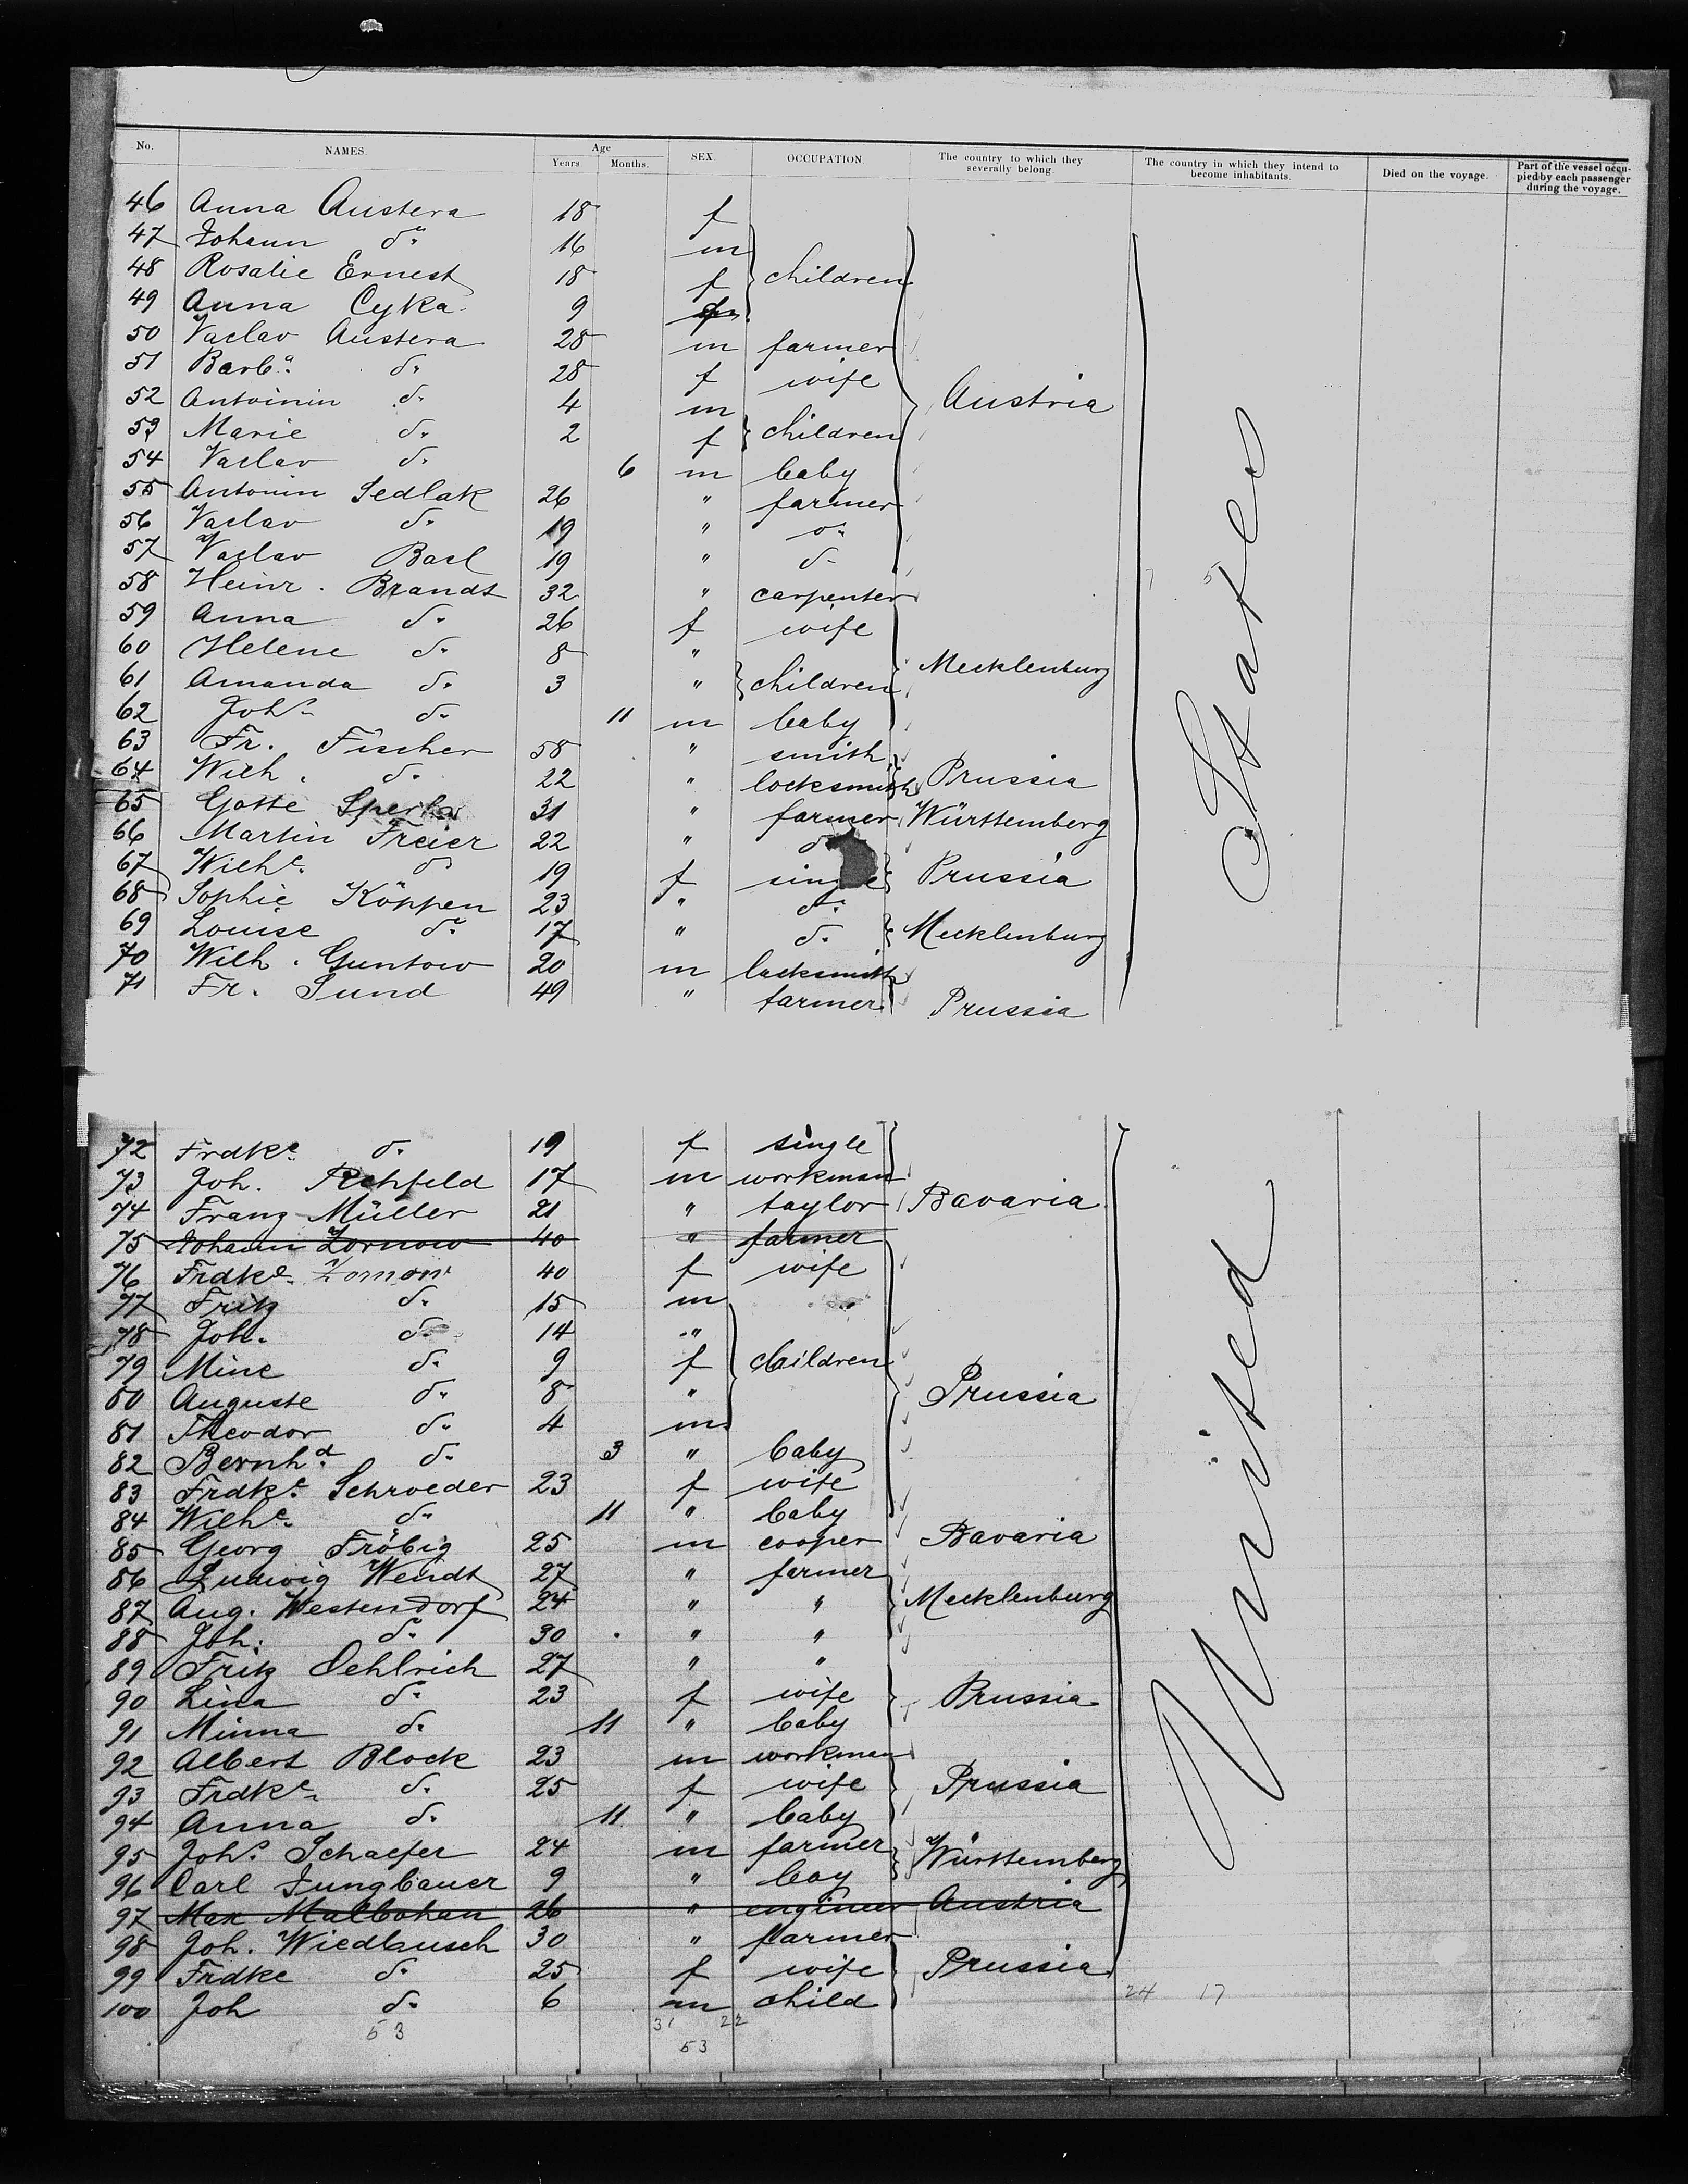 No. NAMES Age Years Months. SEX. OCCUPATION. The country to which they severally belong. The country in which they intend to become inhabitants. Died on the voyage. Part of the vessel occupied by each passenger during the voyage.
46 Anna Austera 18 f
47 Johann do. 16 m
48 Rosalie Ernest 18 f children
49 Anna Cyka 9
50 Vaclav Austera 28 m farmer
51 Barba. do. 28 f wife Austria
52 Antoinin do. 4 m
53 Marie do. 2 f children
54 Vaclav do. 6 m baby
55 Antonin Sedlak 26 " farmer
56 Vaclav do. 19 " do.
57 Vaclav Bacl 19 " do.
58 Heinr. Brandt 32 " carpenter
59 Anna do. 26 f wife
60 Helene do. 8 " Mecklenburg
61 Amanda do. 3 " children
62 Johs. do. 11 m baby
63 Fr. Fischer 58 " smith
64 Wilh. do. 22 " locksmith Prussia
65 Gotte 31 " farmer Württemberg
66 Martin Freier 22 " do.
67 Wilhe. do. 19 f single Prussia
68 Sophie Köppen 23 " do.
69 Louise do. 17 " do. Mecklenburg
70 Wilh. Guntow 20 m locksmith
71 Fr. Sund 49 " farmer Prussia
72 Frdke. do. 19 f single
73 Joh. Rehfeld 17 m workman
74 Franz Müller 21 " taylor Bavaria
75 Johann Zornow 40 " farmer
76 Frdke. Zornow 40 f wife
77 Fritz do. 15 m
78 Joh. do. 14 "
79 Mine do. 9 f children
80 Auguste do. 8 " Prussia
81 Theodor do. 4 m
82 Bernhd. do. 3 " baby
83 Frdke. Schroeder 23 f wife
84 Wilhe. do. 11 " baby
85 Georg Fröbig 25 m cooper Bavaria
86 Ludwig Wendt 27 " farmer
87 Aug. Westendorf 24 " " Mecklenburg
88 Joh. do. 30 " "
89 Fritz Oehlrich 27 " "
90 Lina do. 23 f wife Prussia
91 Minna do. 11 " baby
92 Albert Block 23 m workman
93 Frdke. do. 25 f wife Prussia
94 Anna do. 11 " baby
95 Johs. Schaefer 24 m farmer Württemberg
96 Carl Jungbauer 9 " boy
97 Max Malbohan 26 " engineer Austria
98 Joh. Wiedbusch 30 " farmer
99 Frdke do. 25 f wife Prussia
100 Joh do. 6 m child
24 17
53 31 22
53
United States